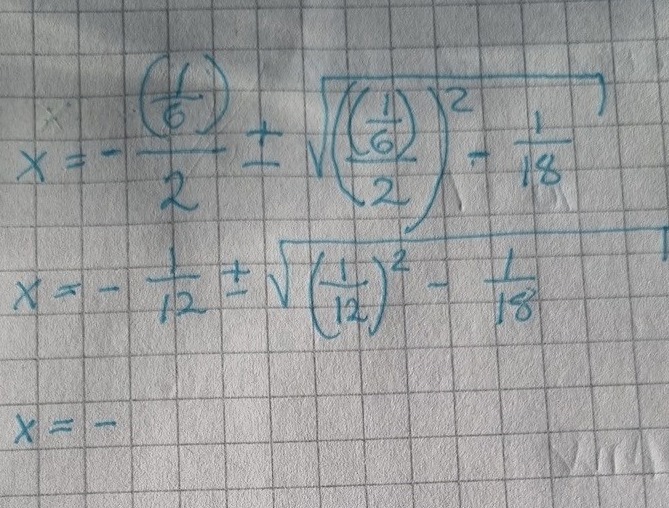 x = - (1/6)/2 ± √(((1/6)/2)² - 1/18)
x = - 1/12 ± √((1/12)² - 1/18)
x = -